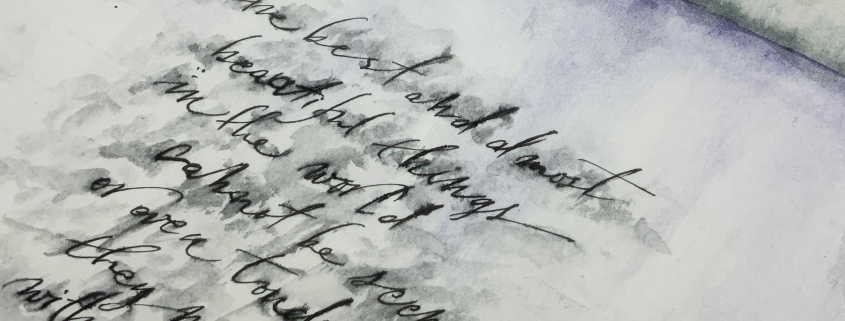 the best and almost
beautiful things
in the world
cannot be seen
or even
they
with